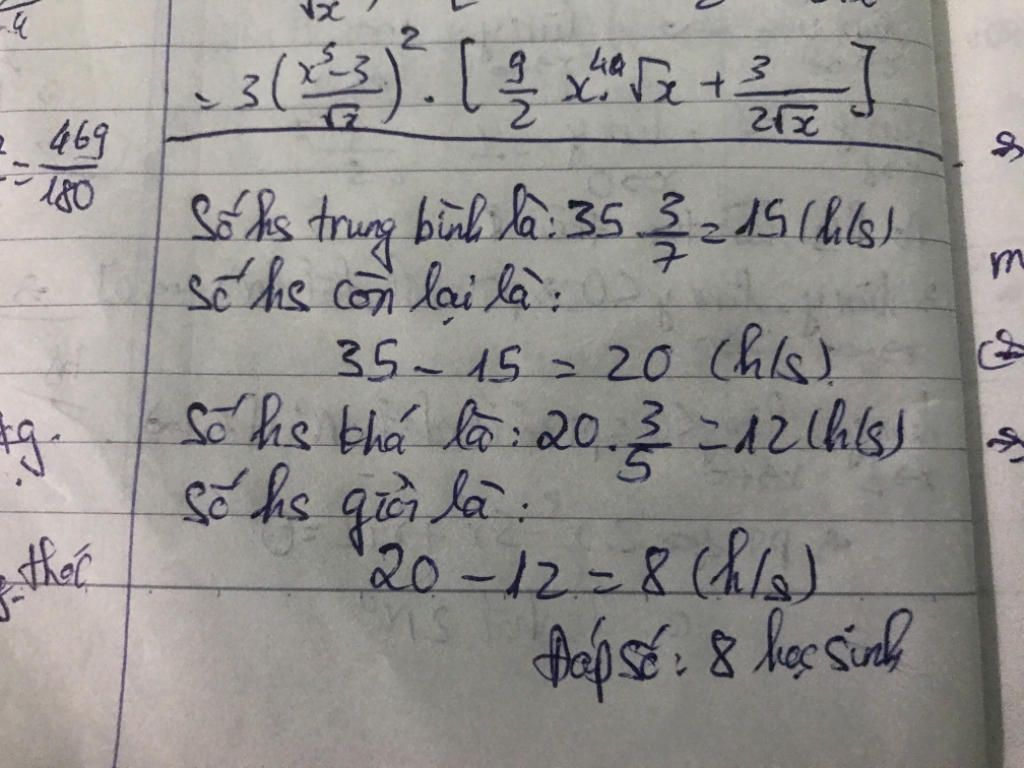 √x
-4
= 3(x⁵-3/√x)² . [9/2 x⁴.√x + 3/2√x]
= 469/180
Số hs trung bình là: 35.3/7 = 15 (h/s)
Số hs còn lại là:
35 - 15 = 20 (h/s)
Số hs khá là: 20.3/5 = 12 (h/s)
Số hs giỏi là:
thức
20 - 12 = 8 (h/s)
Đáp số: 8 học sinh